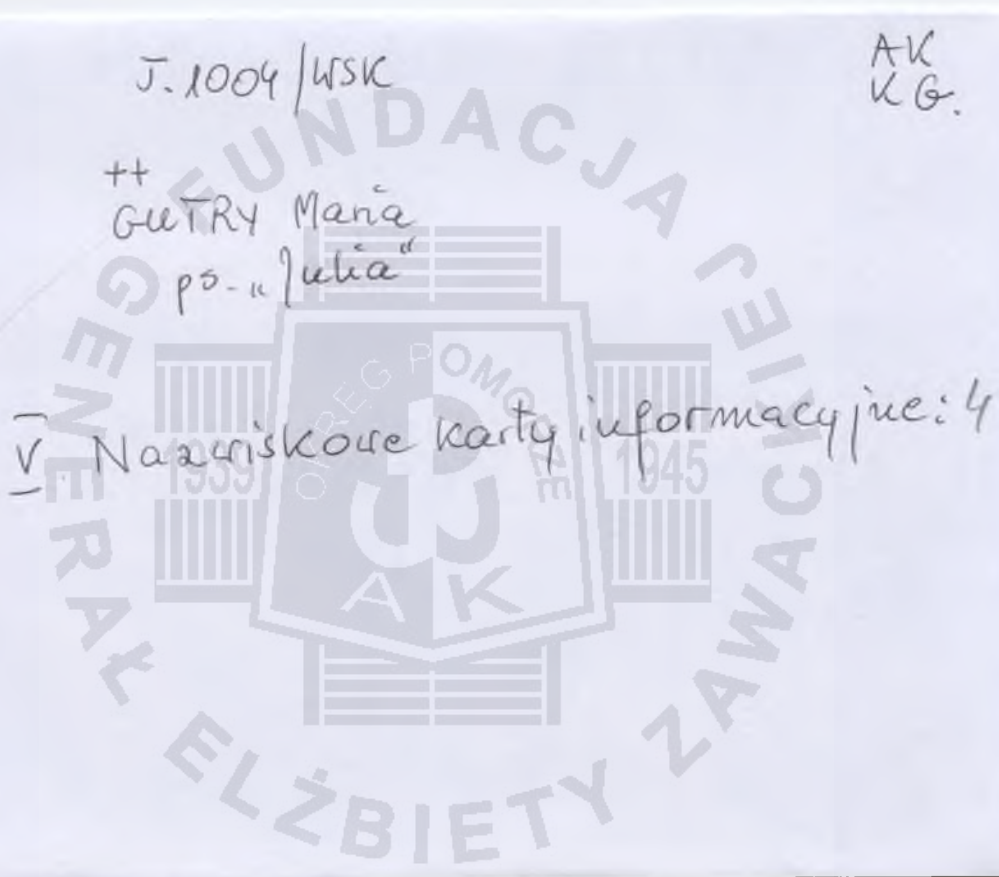 J. 1004/WSK
AK
KG.
++
GUTRY Maria
ps. „Julia"
V Nazwiskowe karty informacyjne: 4
FUNDACJA GENERAŁ ELŻBIETY ZAWACKIEJ
OKRĘG POMORZE
1939
1945
A K